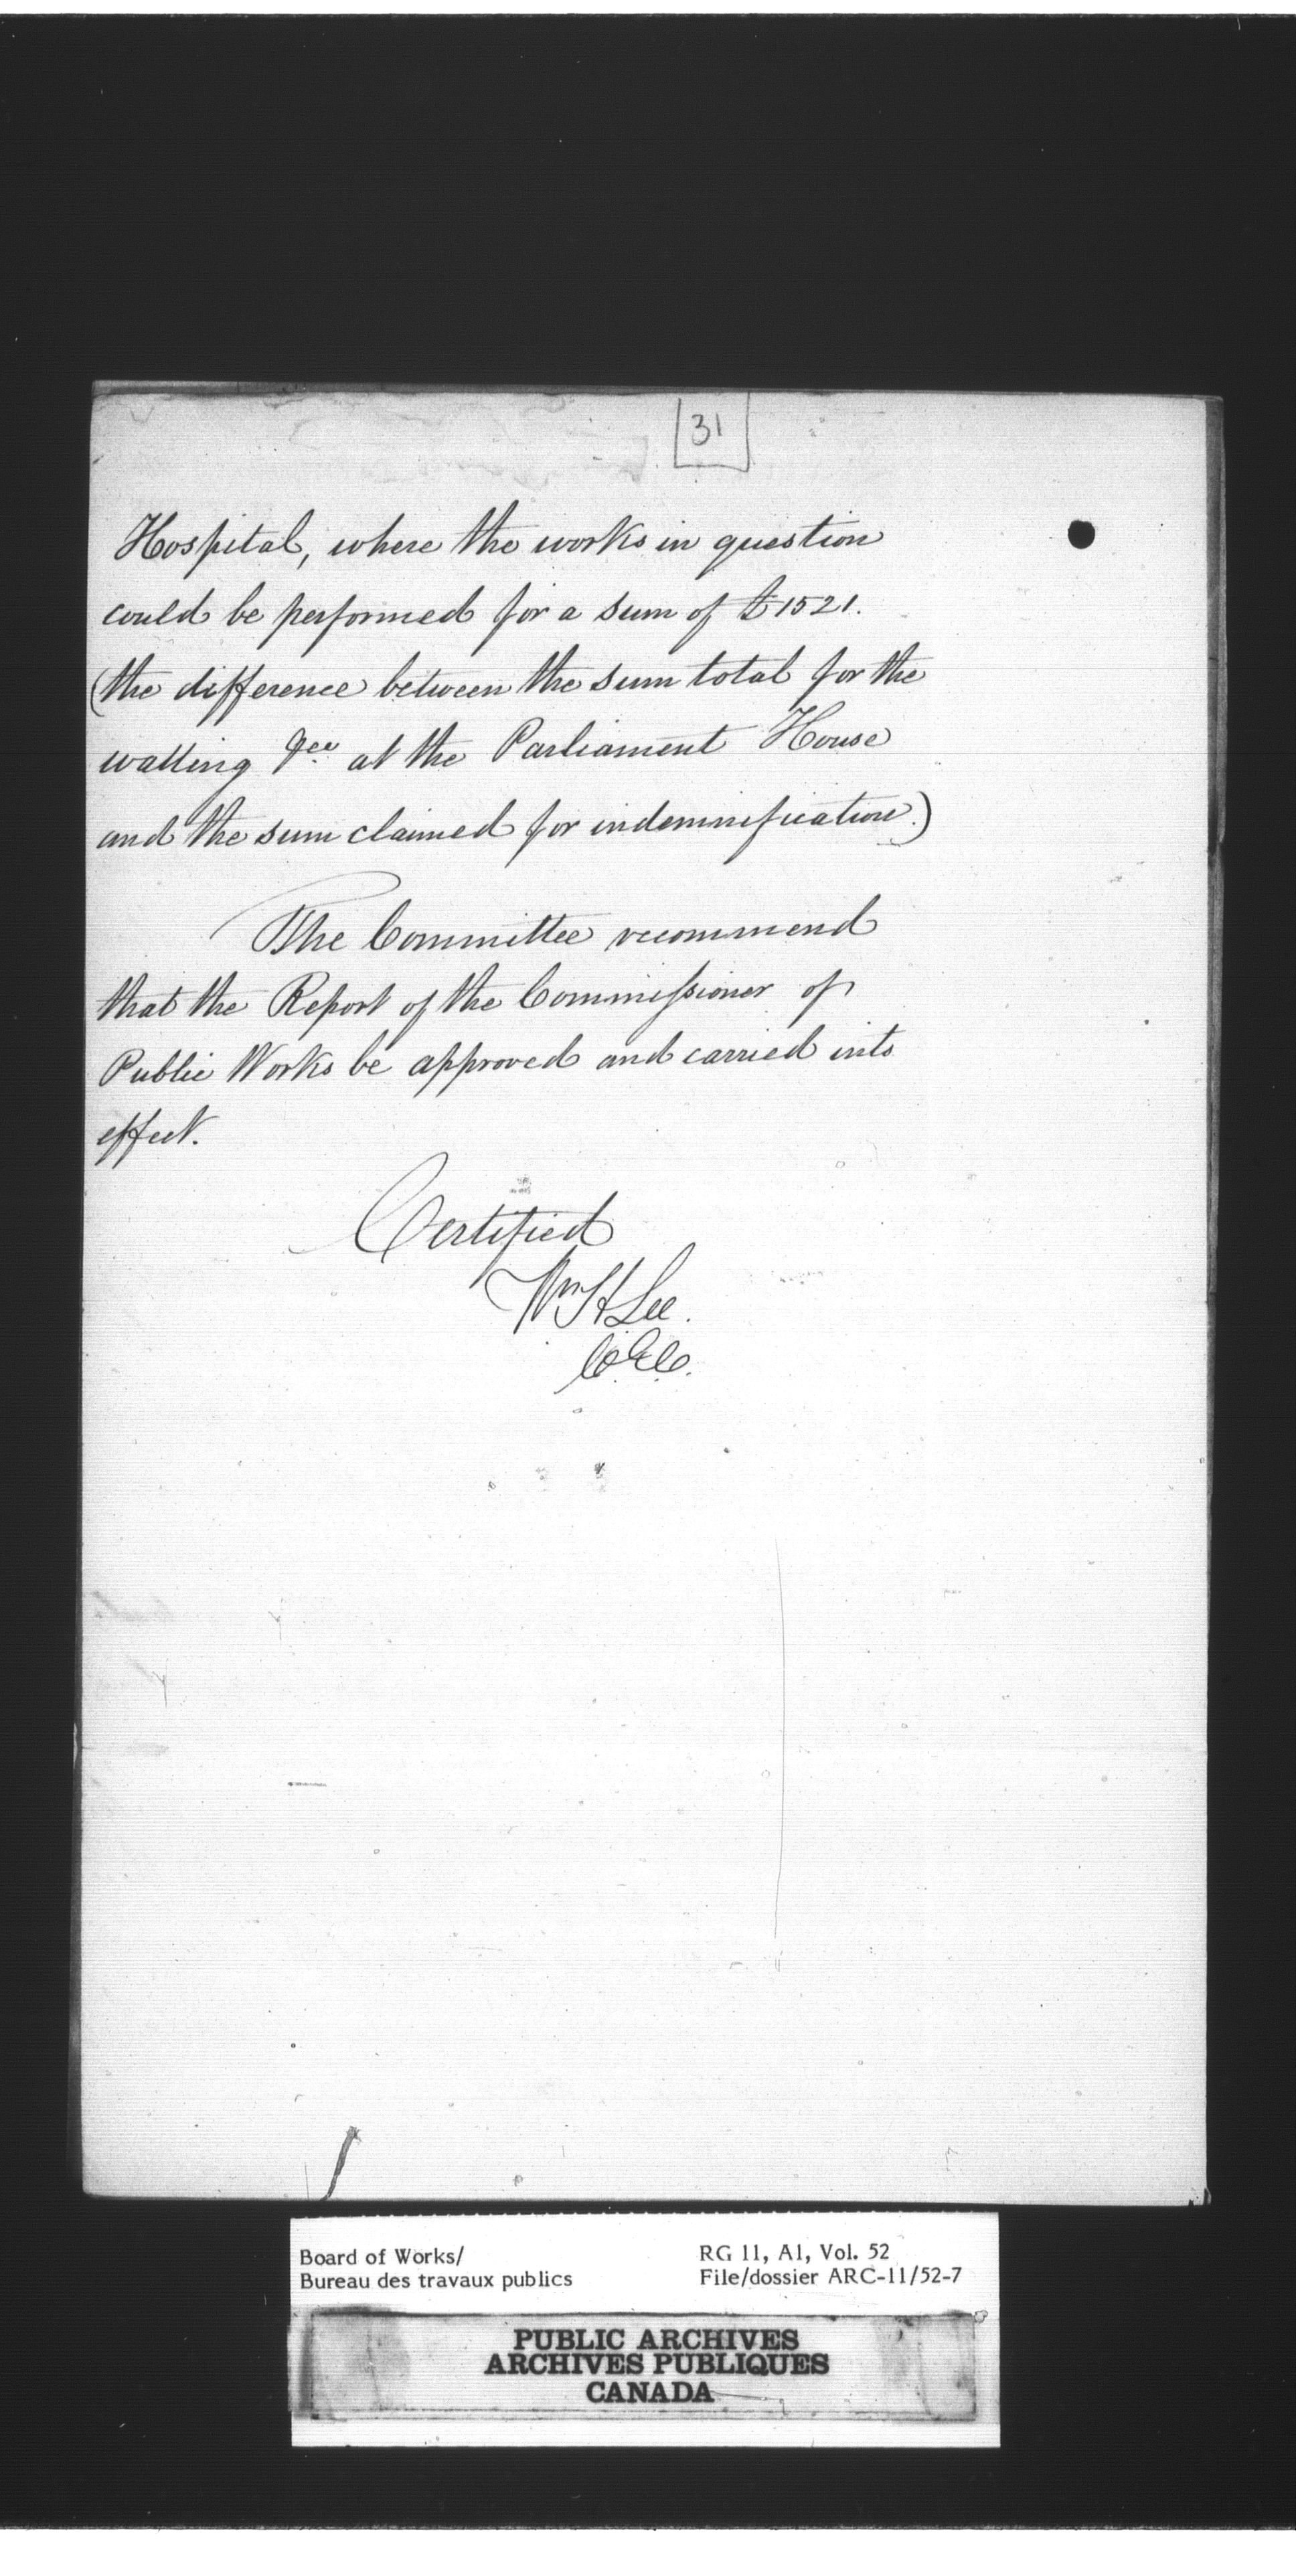 31
Hospital, where the works in question
could be performed for a sum of £1521.
(the difference between the sum total for the
walling &cc at the Parliament House
and the sum claimed for indemnification.)
The Committee recommend
that the Report of the Commissioner of
Public Works be approved and carried into
effect.
Certified
Wm H Lee.
C.E.C.
Board of Works/
Bureau des travaux publics
RG 11, A1, Vol. 52
File/dossier ARC-11/52-7
PUBLIC ARCHIVES
ARCHIVES PUBLIQUES
CANADA